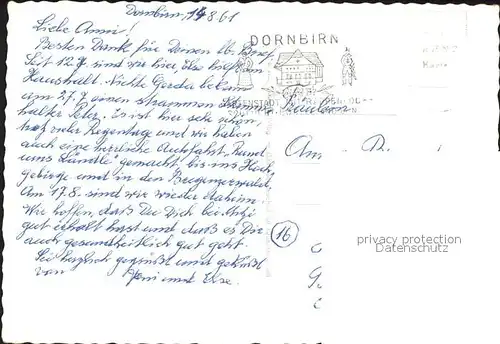 Dornbirn, 14.8.61
Liebe Anni!
Besten Dank für Deinen lb. Brief.
Seit 12.7. sind wir hier, also hilft im
Haushalt. Nichte Gerda bekam
am 27.7. einen strammen
halter Peter. Es ist hier sehr schön,
trotz vieler Regentage und wir haben
auch eine herrliche Autofahrt „Rund
ums Ländle" gemacht bis ins Hoch
gebirge und in den Bregenzerwald.
Am 17.8. sind wir wieder daheim.
Wir hoffen, daß Du Dich bei
gut erholt hast und daß es Dir
auch gesundheitlich gut geht.
Sei herzlich gegrüßt und geküßt
von
DORNBIRN
Fräulein
16
privacy protection
Datenschutz